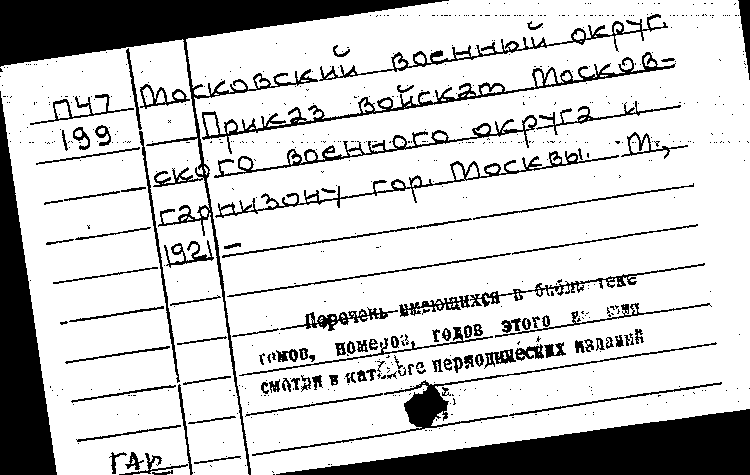 П47 Московский военный округ.
199 Приказ войскам Москов-
ского военного округа и
гарнизону гор. Москвы. М.,
1921 -
Перечень имеющихся в библиотеке
томов, номеров, годов этого издания
смотри в каталоге периодических изданий
ГАР